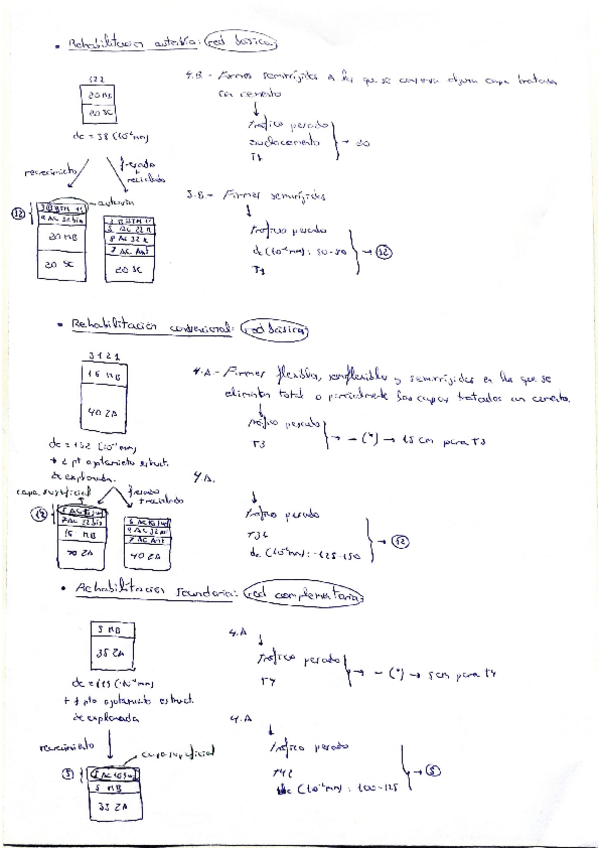 • Rehabilitacion autovia: red básica
122
20 MB
20 SC
dc = 38 (10⁻²mm)
recrecimiento
fresado + reciclado
4.B.- Firmes semirrígidos a los que se conserva alguna capa tratada con cemento
↓
Tráfico pesado
emplazamiento
T1
→ 20
12
3 BBTM 11
autovía
9 AC 22 bin
20 MB
20 SC
3 BBTM 11
5 AC 22
8 AC 22
7 AC Ant
20 SC
5.B.- Firmes semirígidos
↓
Tráfico pesado
dc (10⁻²mm): 50-80
T1
→ 12
• Rehabilitación convencional: red básica
3121
15 MB
40 ZA
dc = 132 (10⁻²mm)
+ 2 pt agotamiento estruct.
de explanada.
4.A.- Firmes flexibles, semiflexibles y semirrígidos en los que se
eliminan total o parcialmente las capas tratados con cemento.
↓
Tráfico pesado
T3
→ - (*) → 15 cm para T3
capa superficial
fresado + reciclado
12
5 AC 16 surf
7 AC 22 bin
15 MB
40 ZA
5 AC 16 surf
7 AC Ant
40 ZA
4.A.
↓
Tráfico pesado
T31
dc (10⁻²mm): 125-150
→ 12
• Rehabilitacion secundaria: red complementaria
5 MB
35 ZA
dc = 115 (10⁻²mm)
+ 1 pto agotamiento estruct.
de explanada
4.A
↓
Tráfico pesado
T4
→ - (*) → 5 cm para T4
recrecimiento
capa superficial
5
5 MB
35 ZA
4.A
↓
Tráfico pesado
T42
dc (10⁻²mm): 100-125
→ 5